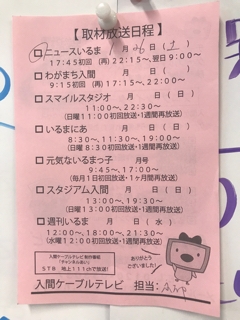 【 取材放送日程 】
□ニュースいるま 1月26日(土)
17:45初回 (再)22:15～、翌日9:00～
□わがまち入間 月 日( )
9:15初回 (再)17:15～、22:00～
□スマイルスタジオ 月 日(日)
11:00～、22:30～
(日曜11:00初回放送・1週間再放送)
□いるまにあ 月 日(日)
8:30～、11:30～、19:00～
(日曜8:30初回放送・1週間再放送)
□元気ないるまっ子 月号
9:45～、17:00～
(毎月1日初回放送・1ヶ月間再放送)
□スタジアム入間 月 日(日)
13:00～、19:30～
(日曜13:00初回放送・1週間再放送)
□週刊いるま 月 日(水)
12:00～、18:00～、21:30～
(水曜12:00初回放送・1週間再放送)
入間ケーブルテレビ制作番組
「チャンネルあい」
STB 地上111chで放送!
ありがとう
ございました!
入間ケーブルテレビ 担当: